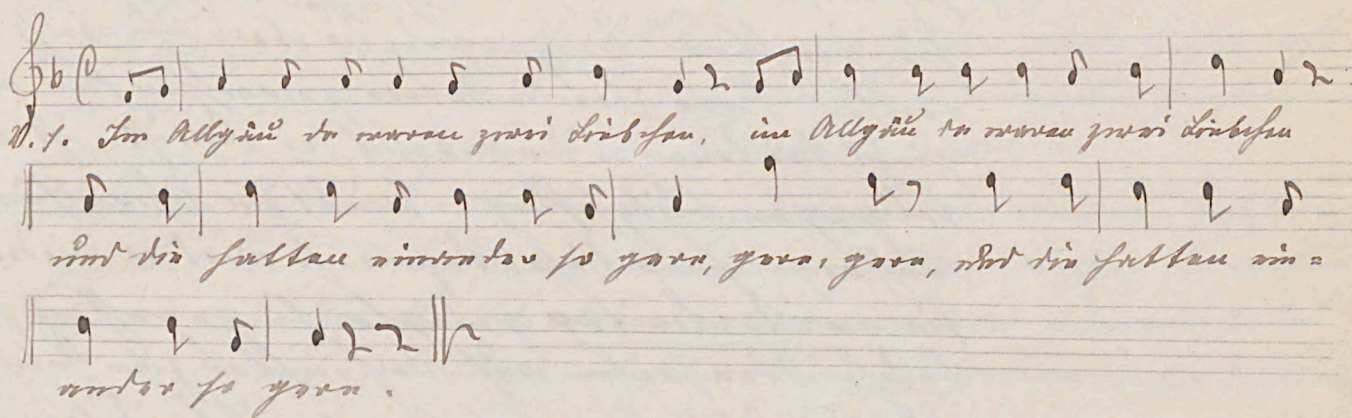 V. 1. Im Allgäu da waren zwei Liebchen, im Allgäu da waren zwei Liebchen
und die hatten einander so gern, gern, gern, und die hatten ein=
ander so gern.